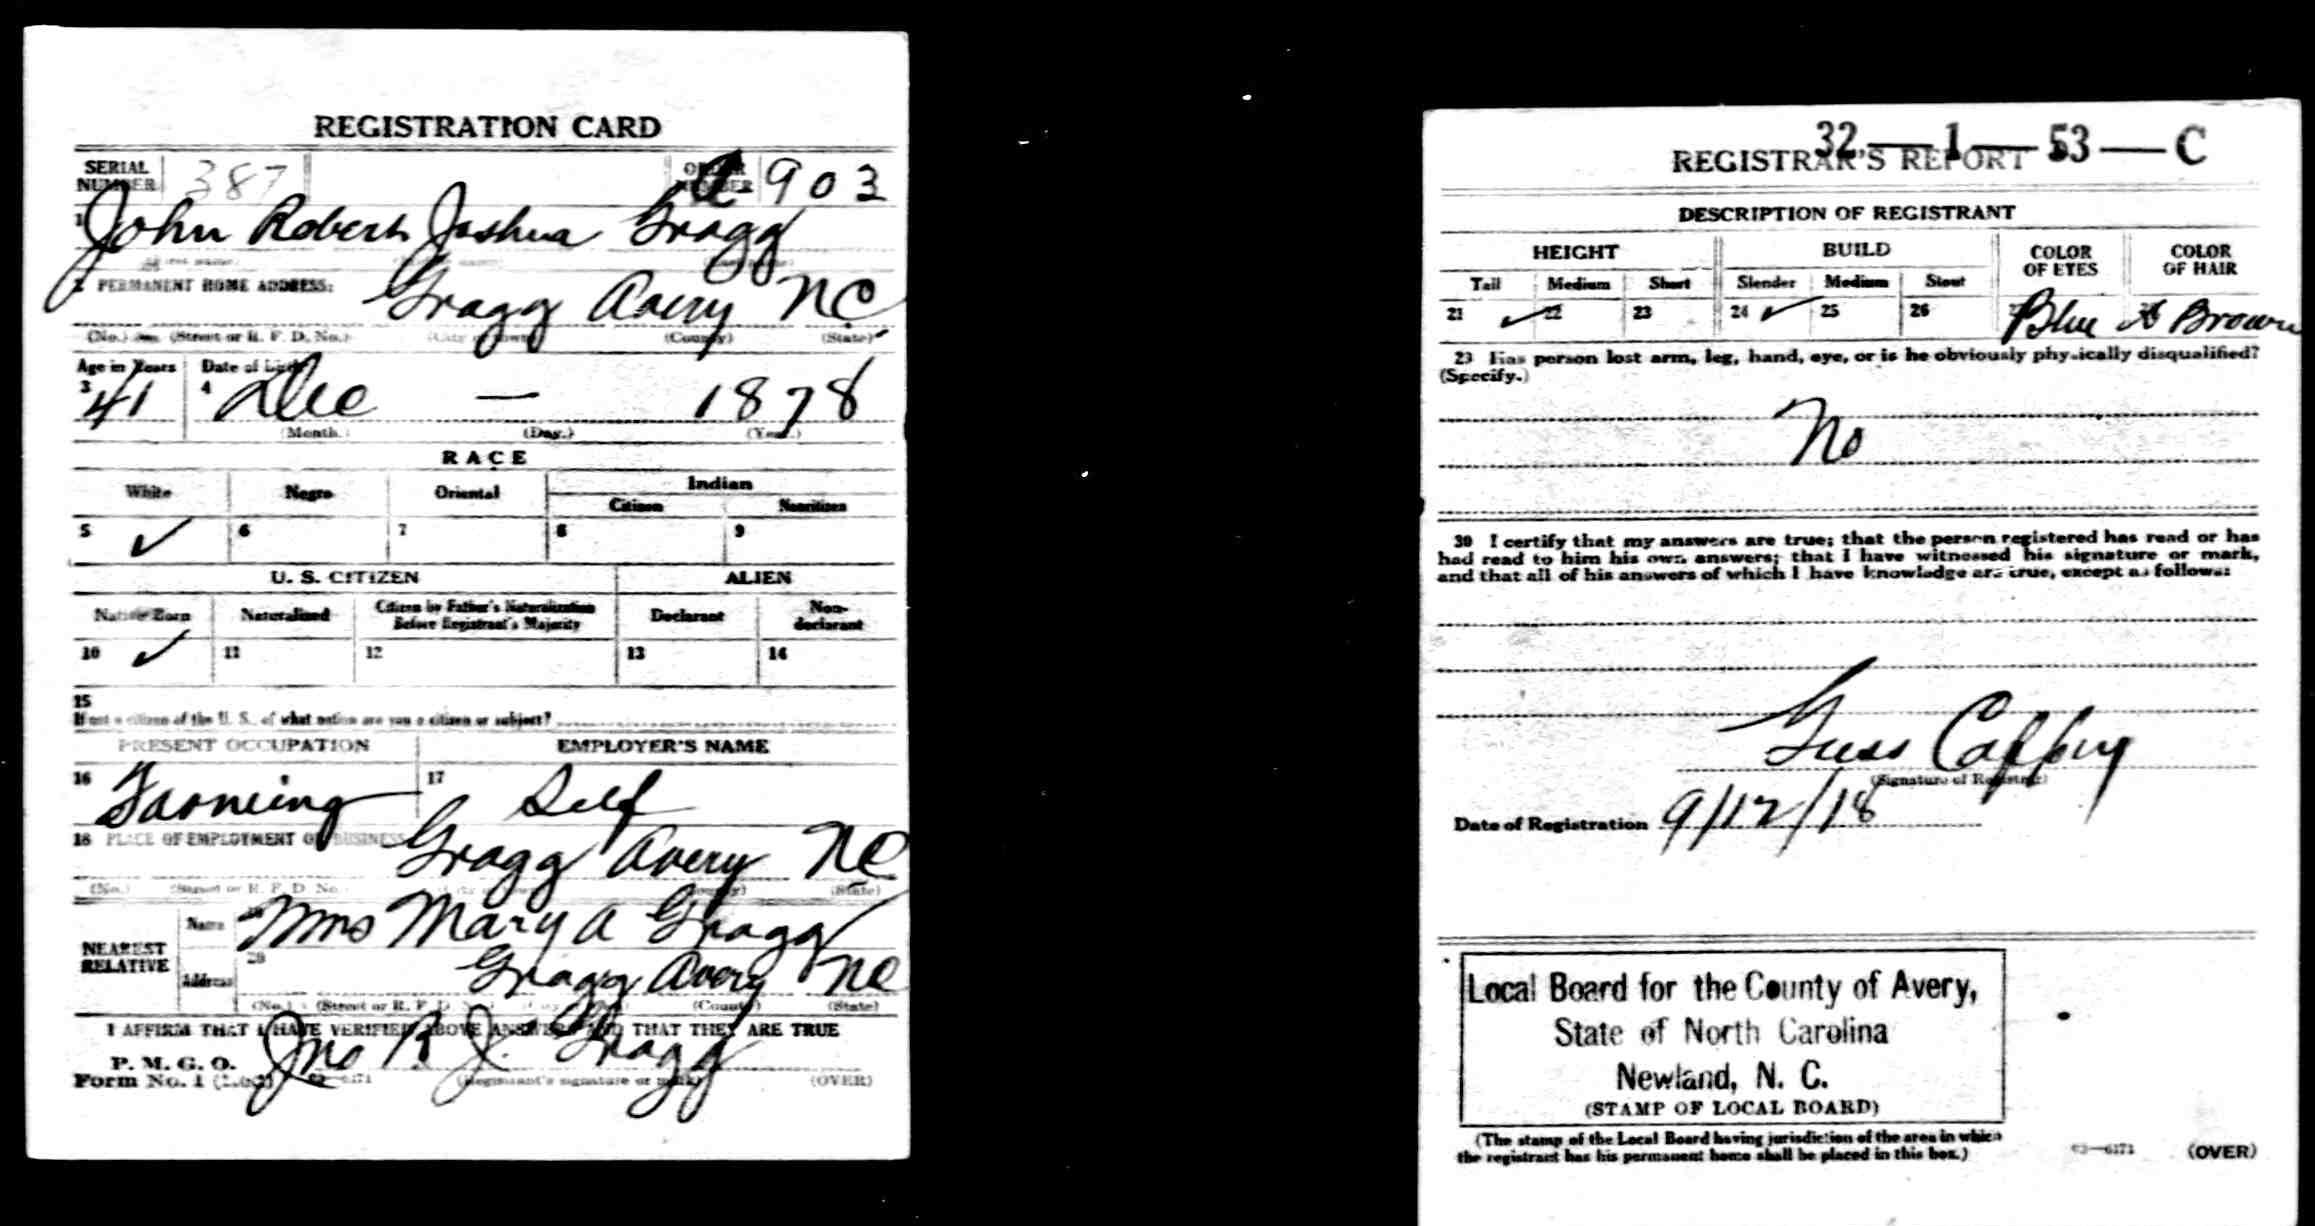 REGISTRATION CARD
SERIAL NUMBER 387 ORDER NUMBER A 903
1 John Robert Joshua Gragg
(First name) (Middle name) (Last name)
2 PERMANENT HOME ADDRESS: Gragg Avery NC
(No.) (Street or R. F. D. No.) (City or town) (County) (State)
Age in Years Date of Birth
3 41 4 Dec — 1878
(Month.) (Day.) (Year.)
RACE
White Negro Oriental Indian
Citizen Noncitizen
5 ✓ 6 7 8 9
U. S. CITIZEN ALIEN
Native Born Naturalized Citizen by Father's Naturalization Before Registrant's Majority Declarant Non-declarant
10 ✓ 11 12 13 14
15
If not a citizen of the U. S., of what nation are you a citizen or subject?
PRESENT OCCUPATION EMPLOYER'S NAME
16 Farming 17 Self
18 PLACE OF EMPLOYMENT OR BUSINESS Gragg Avery NC
(No.) (Street or R. F. D. No.) (City or town) (County) (State)
NEAREST RELATIVE
Name 19 Mrs Mary A Gragg
Address 20 Gragg Avery NC
(No.) (Street or R. F. D. No.) (City or town) (County) (State)
I AFFIRM THAT I HAVE VERIFIED ABOVE ANSWERS AND THAT THEY ARE TRUE
P. M. G. O.
Form No. 1 (Red) 03—6171 Jno R. J. Gragg
(Registrant's signature or mark) (OVER)
32—1—53—C
REGISTRAR'S REPORT
DESCRIPTION OF REGISTRANT
HEIGHT BUILD COLOR OF EYES COLOR OF HAIR
Tall Medium Short Slender Medium Stout
21 ✓ 22 23 24 ✓ 25 26 27 Blue 28 Brown
29 Has person lost arm, leg, hand, eye, or is he obviously physically disqualified?
(Specify.)
No
30 I certify that my answers are true; that the person registered has read or has
had read to him his own answers; that I have witnessed his signature or mark,
and that all of his answers of which I have knowledge are true, except as follows:
Guss
(Signature of Registrar)
Date of Registration 9/12/18
Local Board for the County of Avery,
State of North Carolina
Newland, N. C.
(STAMP OF LOCAL BOARD)
(The stamp of the Local Board having jurisdiction of the area in which
the registrant has his permanent home shall be placed in this box.)
03—6171 (OVER)